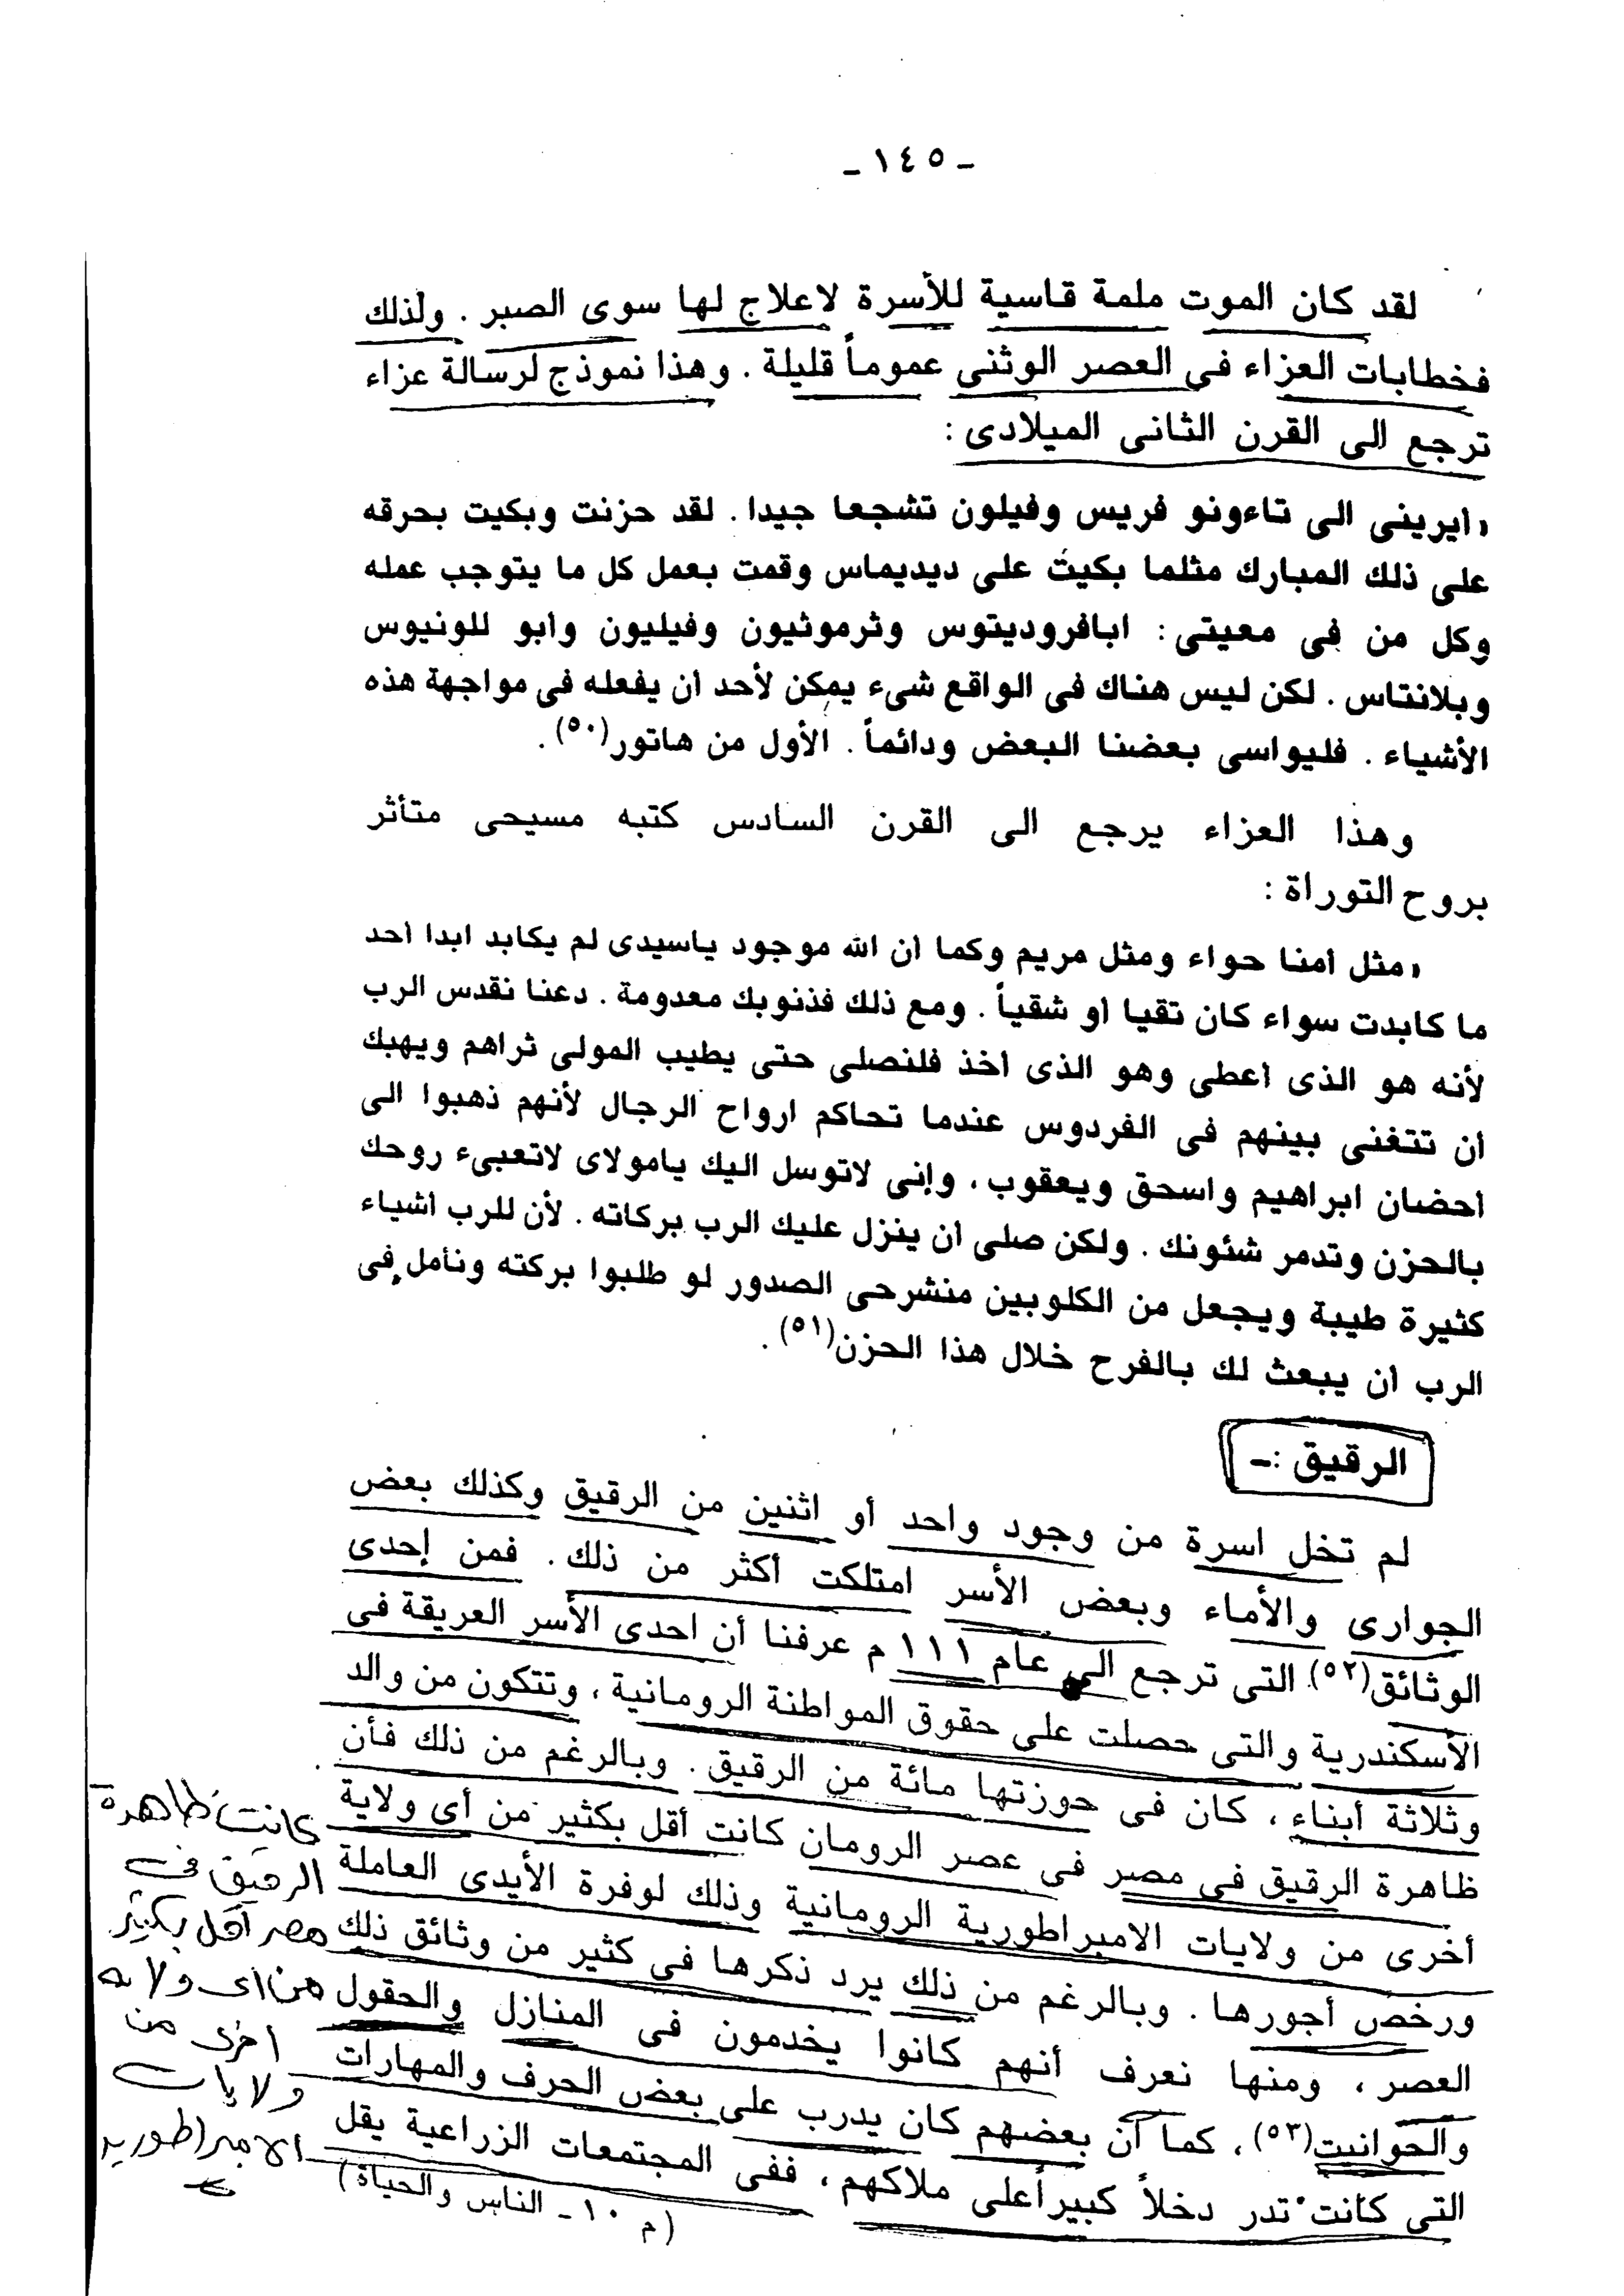 - ١٤٥ -
لقد كان الموت ملمة قاسية للأسرة لاعلاج لها سوى الصبر . ولذلك
فخطابات العزاء فى العصر الوثنى عموماً قليلة . وهذا نموذج لرسالة عزاء
ترجع الى القرن الثانى الميلادى :
«ايرينى الى تاءونو فريس وفيلون تشجعا جيدا . لقد حزنت وبكيت بحرقه
على ذلك المبارك مثلما بكيت على ديديماس وقمت بعمل كل ما يتوجب عمله
وكل من فى معيتى : ابافروديتوس وثرموثيون وفيليون وابو للونيوس
وبلانتاس . لكن ليس هناك فى الواقع شىء يمكن لأحد ان يفعله فى مواجهة هذه
الأشياء . فليواسى بعضنا البعض ودائماً . الأول من هاتور(٥٠) .
وهذا العزاء يرجع الى القرن السادس كتبه مسيحى متأثر
بروح التوراة :
«مثل امنا حواء ومثل مريم وكما ان الله موجود ياسيدى لم يكابد ابدا احد
ما كابدت سواء كان تقيا او شقياً . ومع ذلك فذنوبك معدومة . دعنا نقدس الرب
لأنه هو الذى اعطى وهو الذى اخذ فلنصلى حتى يطيب المولى ثراهم ويهبك
ان تتغنى بينهم فى الفردوس عندما تحاكم ارواح الرجال لأنهم ذهبوا الى
احضان ابراهيم واسحق ويعقوب ، وإنى لاتوسل اليك يامولاى لاتعبىء روحك
بالحزن وتدمر شئونك . ولكن صلى ان ينزل عليك الرب بركاته . لأن للرب اشياء
كثيرة طيبة ويجعل من الكلوبين منشرحى الصدور لو طلبوا بركته ونأمل فى
الرب ان يبعث لك بالفرح خلال هذا الحزن(٥١) .
الرقيق :-
لم تخل اسرة من وجود واحد أو اثنين من الرقيق وكذلك بعض
الجوارى والأماء وبعض الأسر امتلكت أكثر من ذلك . فمن إحدى
الوثائق(٥٢) التى ترجع الى عام ١١١ م عرفنا أن احدى الأسر العريقة فى
الأسكندرية والتى حصلت على حقوق المواطنة الرومانية ، وتتكون من والد
وثلاثة أبناء ، كان فى حوزتها مائة من الرقيق . وبالرغم من ذلك فأن
ظاهرة الرقيق فى مصر فى عصر الرومان كانت أقل بكثير من أى ولاية
أخرى من ولايات الامبراطورية الرومانية وذلك لوفرة الأيدى العاملة
ورخص أجورها . وبالرغم من ذلك يرد ذكرها فى كثير من وثائق ذلك
العصر ، ومنها نعرف أنهم كانوا يخدمون فى المنازل والحقول
والحوانيت(٥٣) ، كما أن بعضهم كان يدرب على بعض الحرف والمهارات
التى كانت تدر دخلاً كبيراً على ملاكهم ، ففى المجتمعات الزراعية يقل
(م ١٠ - الناس والحياة)
كانت ظاهرة
الرقيق فى
مصر أقل بكثير
من اى ولايه
اخرى من
ولايات
الامبراطوريه